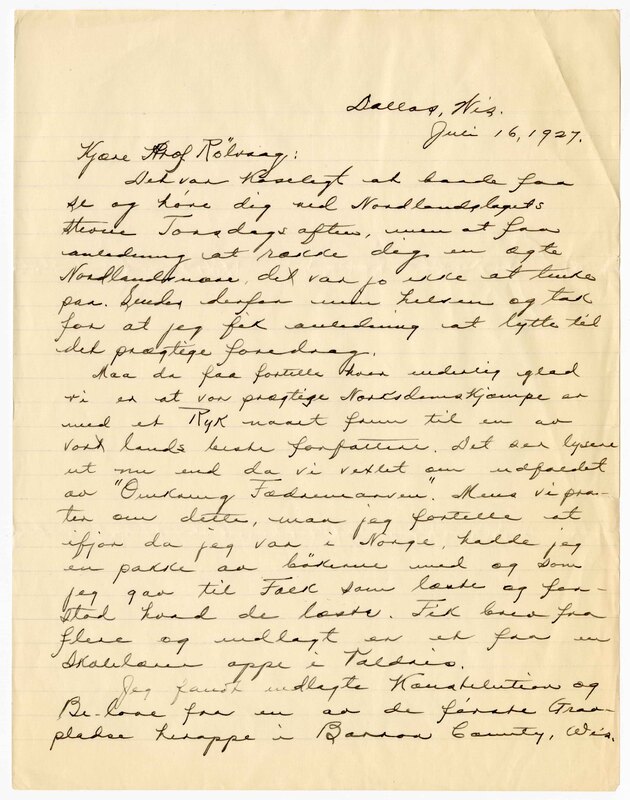 Dallas, Wis.
Juli 16, 1927.
Kjære Prof Rölvaag:
Det var koseligt at baade faa
se og höre dig ved Nordlandslagets
stevne Torsdags aften, men at faa
anledning at række dig en ægte
Nordlandsnæve, det var jo ikke at tenke
paa. Sender derfor min hilsen og tak
for at jeg fik anledning at lytte til
det prægtige foredrag.
Maa da faa fortelle hvor inderlig glad
vi er at vor prægtige Norskdomskjæmpe er
med et Ryk naaet frem til en av
vort lands beste forfattere. Det ser lysere
ut nu end da vi vekslet om utfaldet
av "Omkring Fædrearven". Mens vi pra-
ter om dette, maa jeg fortelle at
ifjor da jeg var i Norge, hadde jeg
en pakke av bökerne med og som
jeg gav til Folk som læste og for-
stod hvad de læste. Fik brev fra
flere og indlagt er et fra en
Skolelærer oppe i Valdris.
Jeg fandt indlagte Konstitution og
Bi-love fra en av de förste Grav-
pladse heroppe i Barron County, Wis.